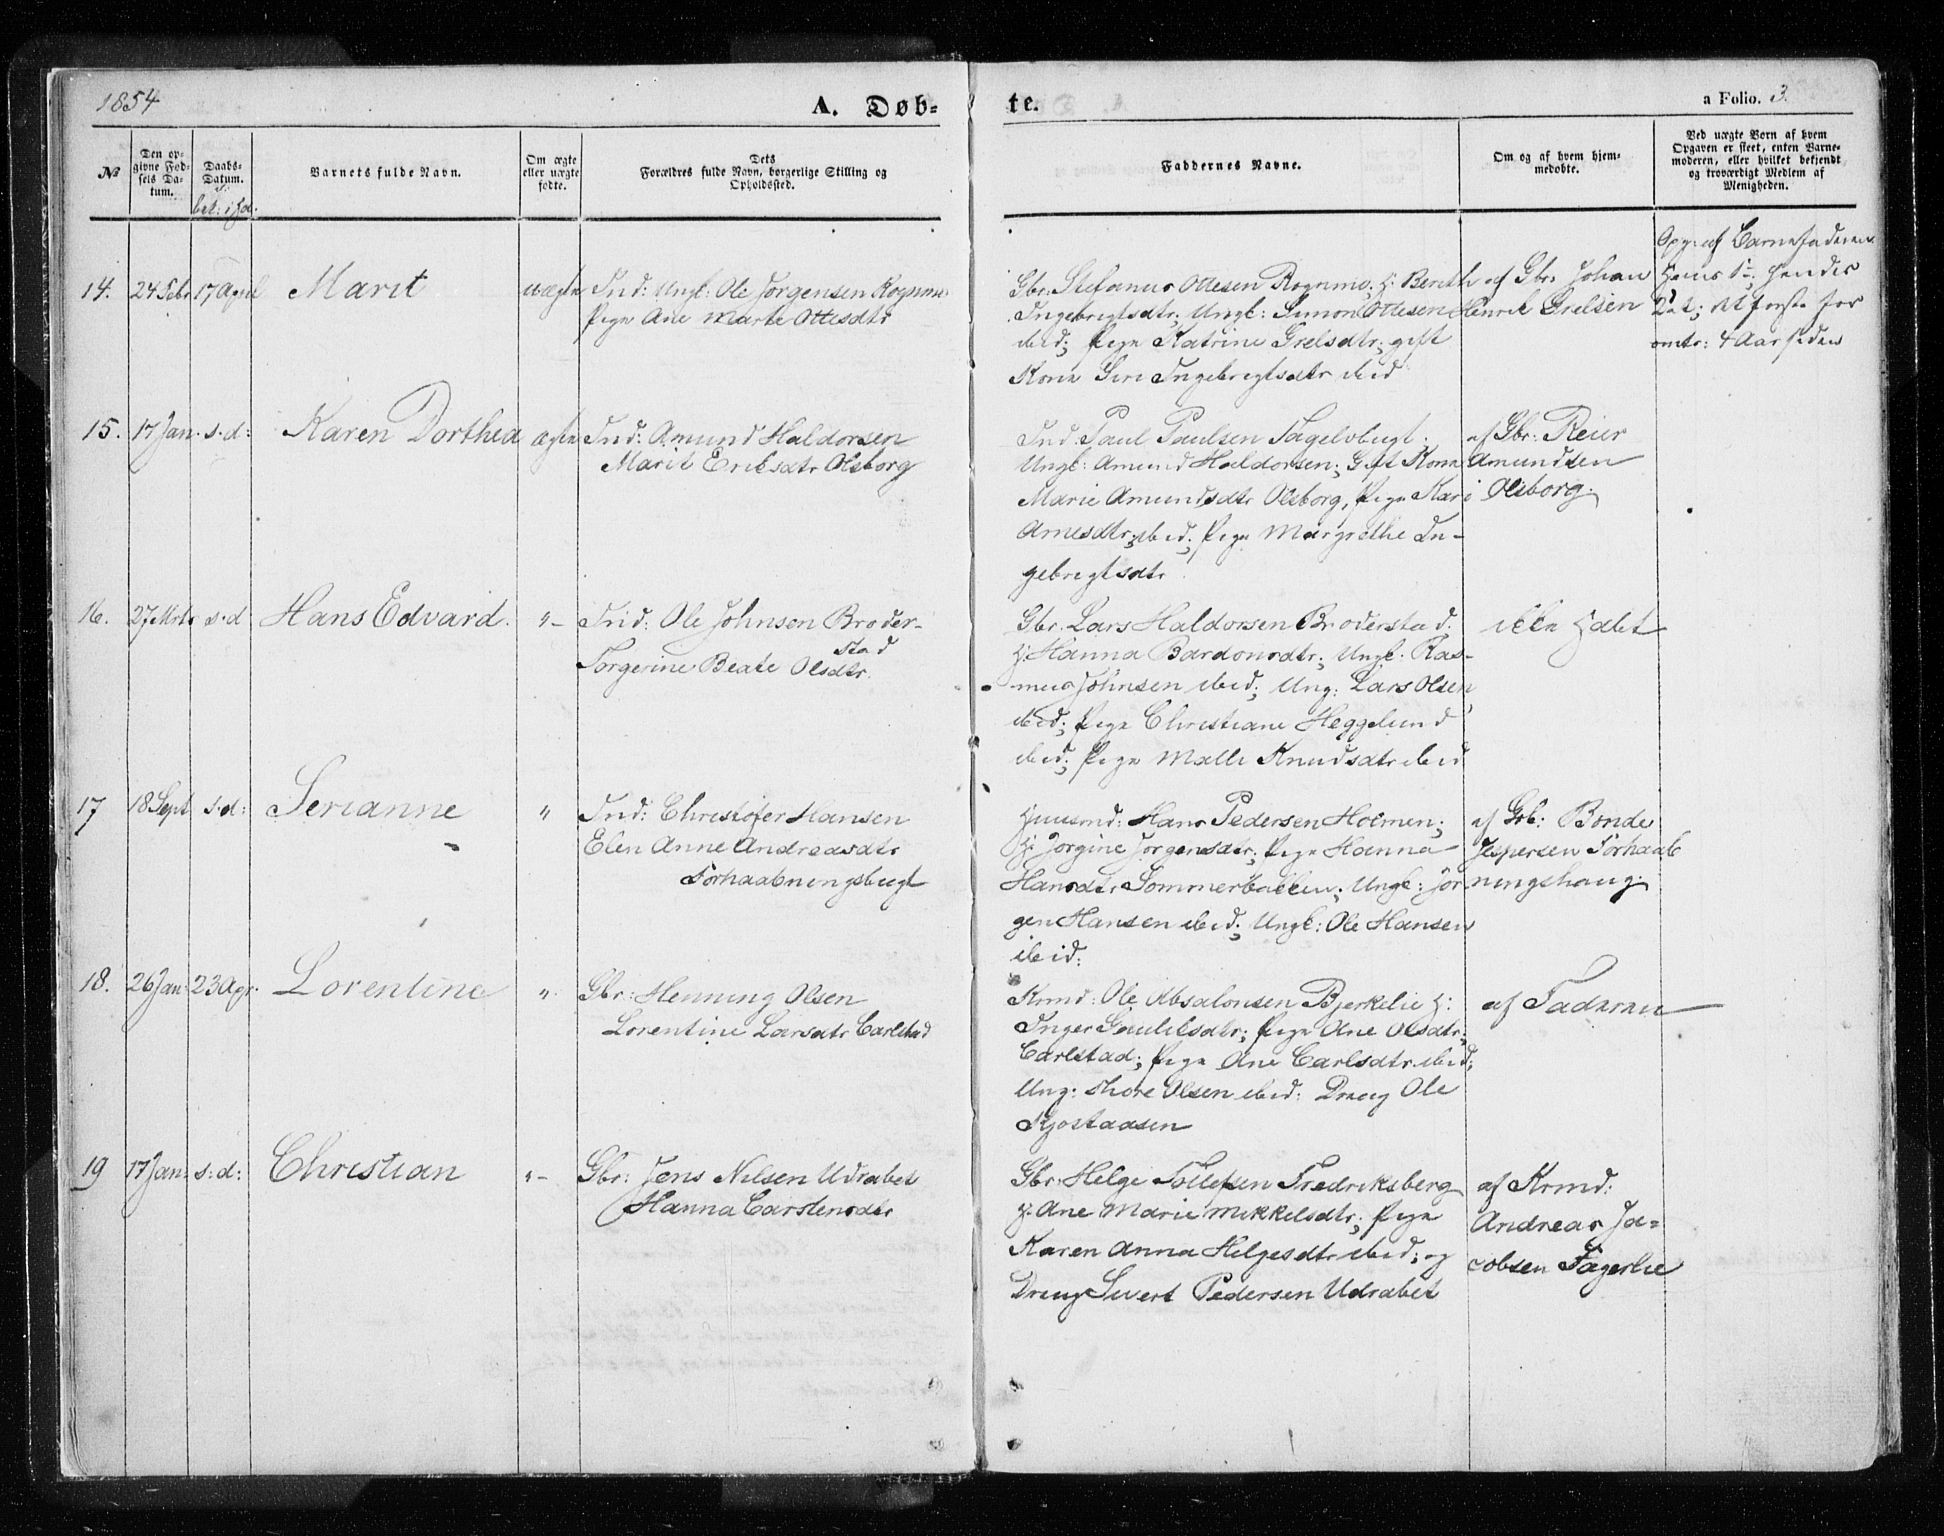 1854
A. Døb-
te.
a Folio. 3.
№
Den op-
givne Fød-
sels Da-
tum.
Daabs-
Datum.
Barnets fulde Navn.
Om ægte
eller uægte
fødte.
Dets
Forældres fulde Navn, borgerlige Stilling og
Opholdssted.
Faddernes Navne.
Om og af hvem hjem-
medøbte.
Ved uægte Børn af hvem
Opgaven er skeet, enten Barne-
moderen, eller hvilket bekjendt
og troværdigt Medlem af
Menigheden.
14. 24 Febr 17 April Marit uægte Ind: Ungk: Ole Jørgensen Rognmo
Pige Ane Marte Ottesdtr
Gbr. Stefanus Ottesen Rognmo, H: Berith
Ingebrigtsdtr; Ungk: Simon Ottesen
ibid; Pige Katrine Grelsdtr; gift
Kone Siri Ingebrigtsdtr ibid
af Gbr. Johan
Henrik Grelsen
Opg: af Barnefaderen
Hans 1ste, hendes
2det; det første for
omtr: 4 Aar siden
15. 17 Jan. s.d: Karen Dorthea ægte Ind: Amund Haldorsen
Marit Eriksdtr Olsborg
Ind: Paul Paulsen Fagelvbugt.
Ungk: Amund Haldorsen; Gift Kone
Marie Amundsdtr Olsborg, Pige Kari
Arnesdtr ibid; Pige Margrethe In-
gebrigtsdtr
af Gbr: Reier
Amundsen
Olsborg.
16. 27 Mrts s.d Hans Edvard. "- Ind: Ole Johnsen Broder-
stad
Torgerine Beate Olsdtr.
Gbr. Lars Haldorsen Broderstad.
H: Hanna Bardonsdtr; Ungk. Ras-
mus Johnsen ibid; Ung: Lars Olsen
ibid; Pige Christiane Heggelund
ibid; Pige Malli Knudsdtr ibid
ikke Hdbt
17 18 Sept s.d: Serianne " Ind: Christofer Hansen
Elen Anne Andreasdtr
Forhaabningsbugt
Huusmd: Hans Pedersen Holmen;
H: Jørgine Jørgensdtr; Pige Hanna
Hansdtr Sommerbakken; Ungk: Jør-
gen Hansen ibid; Ungk: Ole Hansen
ibid:
af Grb: Bonde
Jespersen Forhaab
ningshaug.
18. 26 Jan: 23 Apr. Lorentine " Gbr: Henning Olsen
Lorentine Larsdtr Carlstad
Krmd: Ole Absalonsen Bjerkelie H:
Inger Gaulilsdtr; Pige Ane Olsdtr;
Carlstad; Pige Ane Carlsdtr ibid;
Ung: Thore Olsen ibid: Dreng Ole
Kjøstadsen
af Faderen
19 17 Jan: s:d: Christian "- Gbr: Jens Nilsen Udrabet
Hanna Carstensdtr
Gbr: Helge Tollefsen Fredriksberg
H. Ane Marie Mikkelsdtr; Pige
Karen Anna Helgesdtr ibid; og
Dreng Sivert Pedersen Udrabet
af Krmd:
Andreas Ja-
cobsen Fagerlie